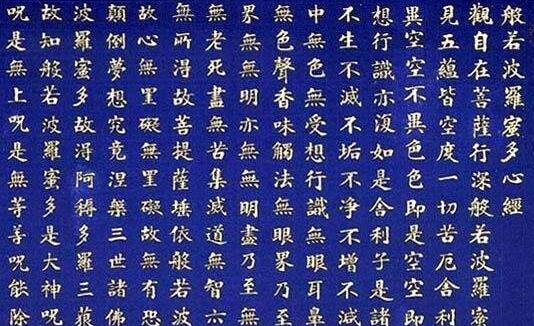 般若波羅蜜多心經
觀自在菩薩行深般若波羅蜜
見五蘊皆空度一切苦厄舍利
異空空不異色色即是空空即
想行識亦復如是舍利子是諸
不生不滅不垢不淨不增不減
中無色無受想行識無眼耳鼻
無色聲香味觸法無眼界乃至
界無無明亦無無明盡乃至無
無老死盡無苦集滅道無智亦
無所淂故菩提薩埵依般若波
故心無罣礙無罣礙故無有恐
顛倒夢想究竟涅槃三世諸佛
波羅蜜多故淂阿耨多羅三藐
故知般若波羅蜜多是大神呪
呪是無上呪是無等善呪能除